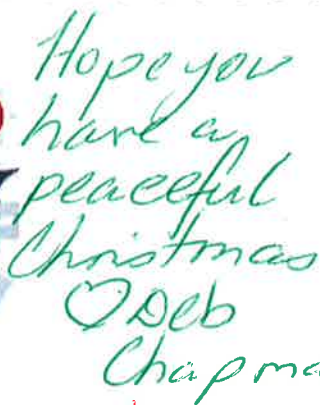 Hope you
have a
peaceful
Christmas
♡ Deb
Chapma